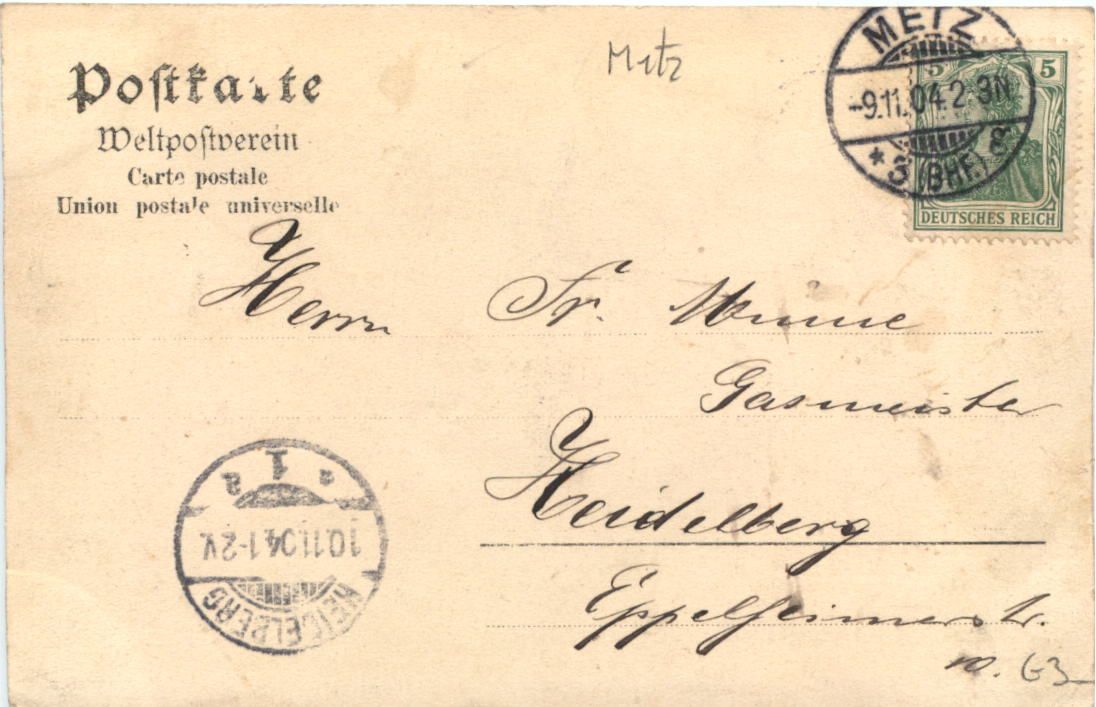 Postkarte
Weltpostverein
Carte postale
Union postale universelle
Metz
METZ
-9.11.04.2-3N
* 3 (BHF.)
5 5
DEUTSCHES REICH
Herrn Fr.
Gasmeister
Heidelberg
Eppelheimerstr.
HEIDELBERG
10.11.04.1-2V.
* 1 a